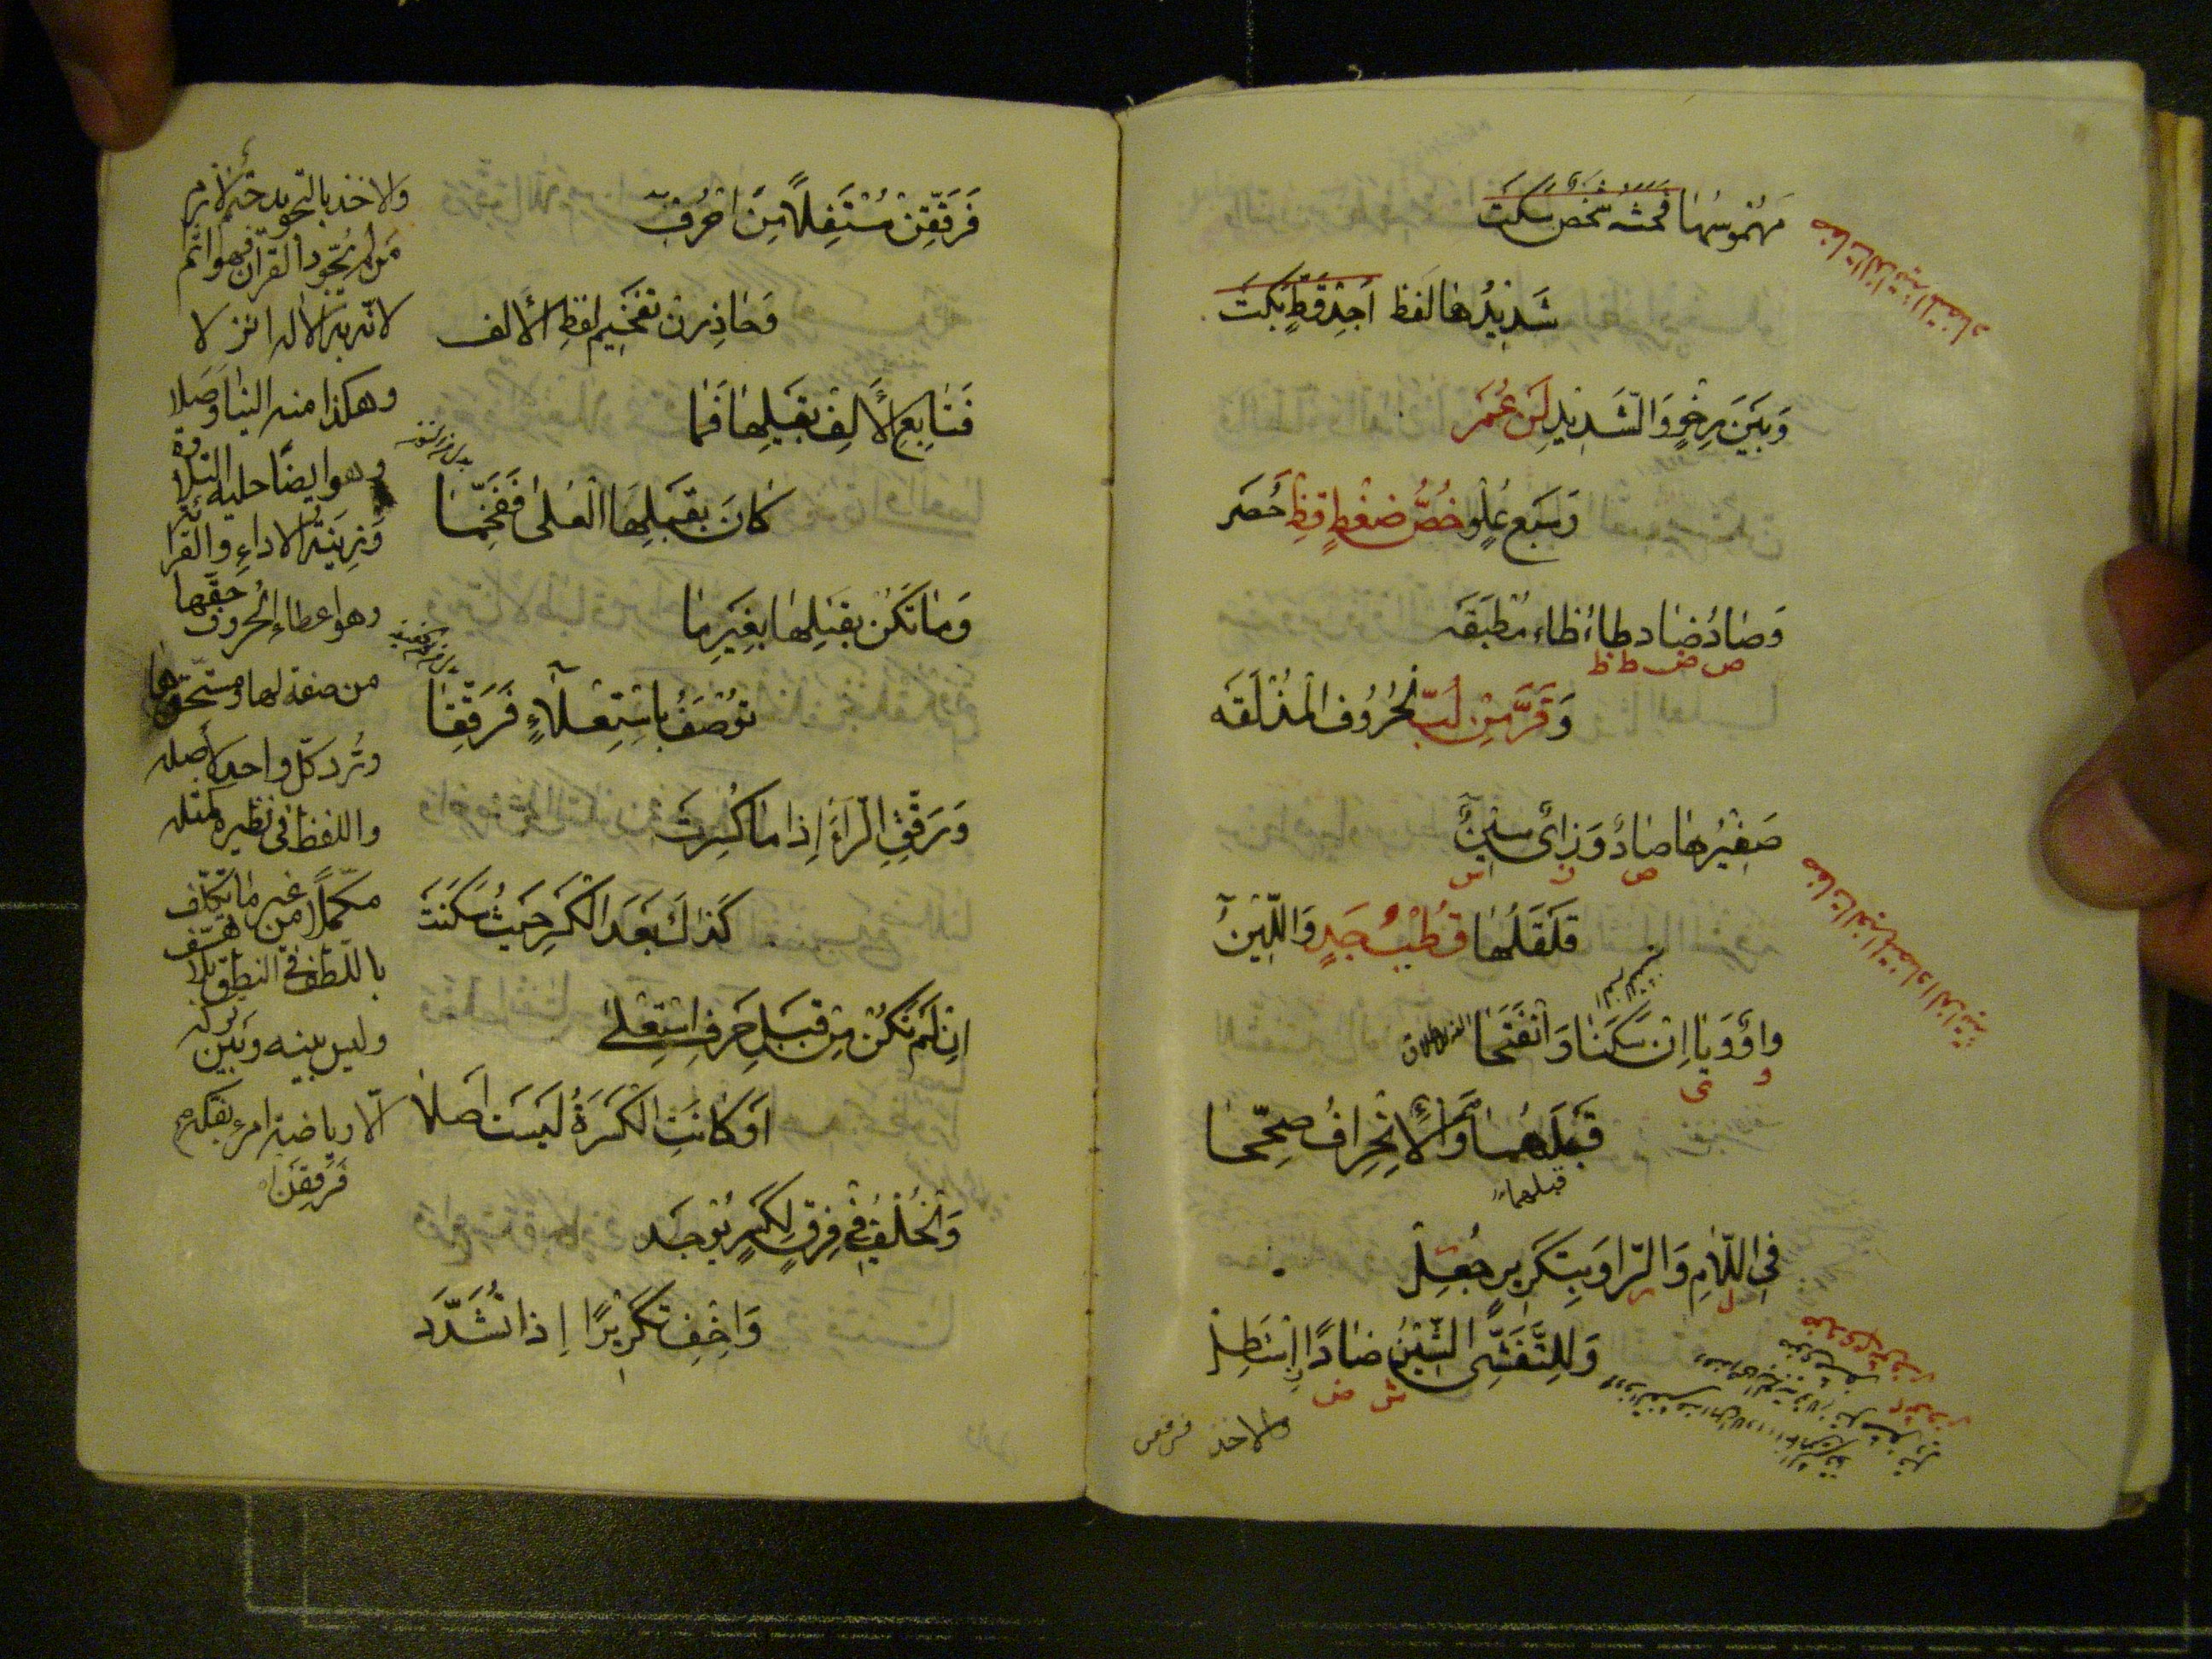 مَهْمُوسُهَا فَحَثَّهُ شَخْصٌ سَكَتْ
شَدِيدُهَا لَفْظُ اَجِدْ قَطٍ بَكَتْ
وَبَيْنَ رِخْوٍ وَالشَّدِيدِ لِنْ عُمَرْ
وَسَبْعُ عُلْوٍ خُصَّ ضَغْطٍ قِظْ حَصَرْ
وَصَادُ ضَاد طاءُ ظاء مُطْبَقَه
ص ض ط ظ
وَفَرَّ مِنْ لُبِّ الْحُرُوفُ الْمُذْلَقَه
صَفِيْرُهَا صَادٌ وَزَائٌ سِيْنٌ
ص ز س
قَلْقَلَهَا قُطْبُ جَدٍ وَاللِّيْنُ
وَاوٌ وَيَا اِنْ سَكَنَا وَانْفَتَحَا
و ى
قَبْلَهُمَا وَالْاِنْحِرَافُ صُحِّحَا
قبلهما
فِي اللَّامِ وَالرَّا وَبِتَكْرِيرٍ جُعِلْ
ل ر
وَلِلتَّفَشِّى الشِّيْنُ ضَادًا اِسْتَطِلْ
ش ض
والاخذ فرققن
صفات الذاتية المتضاد
صفات الغير المتضاد الذاتية
فَرَقِّقَنْ مُسْتَفِلًا مِنْ اَحْرُفٍ
وَحَاذِرَنْ تَفْخِيْمَ لَفْظِ الْاَلف
فَتَابِعِ الْاَلِفَ بِقَبْلِهَا فَمَا
كَانَ بِقَبْلِهَا الْعُلٰى فَفَخِّمَا
وَمَا تَكُنْ بِقَبْلِهَا بِغَيْرِ مَا
تُوْصَفُ بِاسْتِعْلَاءٍ فَرَقِّقَا
وَرَقِّقِ الرَّاءَ اِذَا مَا كُسِرَتْ
كَذَاكَ بَعْدَ الْكَسْرِ حَيْثُ سَكَنَتْ
اِنْ لَمْ تَكُنْ مِنْ قَبْلِ حَرْفِ اسْتِعْلٰى
اَوْ كَانَتِ الْكَسْرَةُ لَيْسَتْ اَصْلًا
وَالْخُلْفُ فِى فِرْقٍ لِكَسْرٍ يُوْجَد
وَاَخْفِ تَكْرِيْرًا اِذَا تُشَدَّد
والاخذ بالتجويد حتم لازم
من لم يجود القرآن فهو اثم
لانه به الاله انزلا
وهكذا منه الينا وصلا
وهو ايضًا حلية التلاوة
وزينة الاداء والقرائة
وهو اعطاء الحروف حقها
من صفة لها ومستحقها
وترد كل واحد لاصله
واللفظ فى نظيره كمثله
مكملًا من غير ما تكلف
باللطف فى النطق بلا تعسف
وليس بينه وبين تركه
الا رياضة امرء بفكه
فرققن